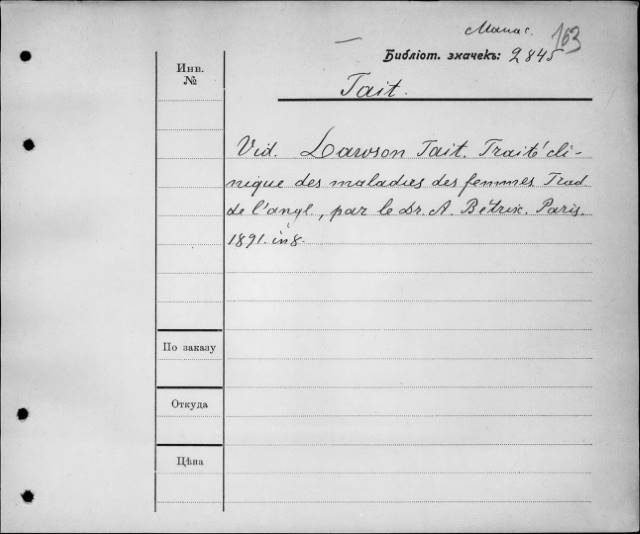 Манас. 163
Библіот. значекъ: 2845
Инв.
№
Tait.
Vid. Lawson Tait. Traité cli-
nique des maladies des femmes. Trad
de l'angl., par le Dr. A. Bétrix. Paris.
1891. in 8.
По заказу
Откуда
Цѣна